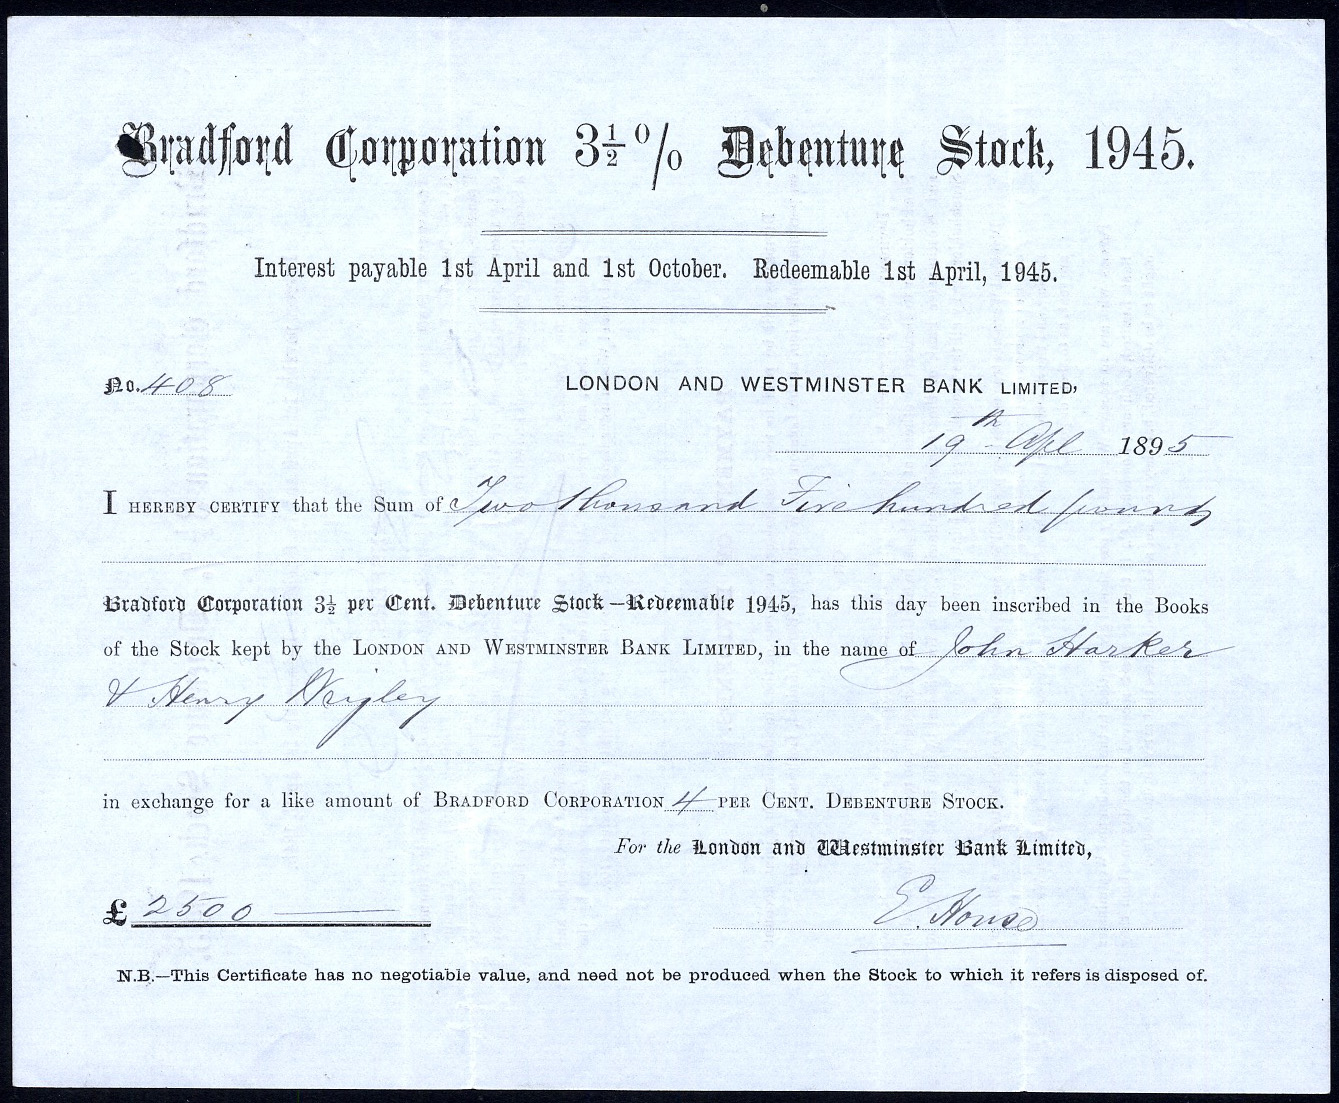 Bradford Corporation 3½% Debenture Stock, 1945.
Interest payable 1st April and 1st October. Redeemable 1st April, 1945.
No. 408
LONDON AND WESTMINSTER BANK LIMITED,
19th Apl 1895
I HEREBY CERTIFY that the Sum of Two thousand Five hundred pounds
Bradford Corporation 3½ per Cent. Debenture Stock—Redeemable 1945, has this day been inscribed in the Books
of the Stock kept by the LONDON AND WESTMINSTER BANK LIMITED, in the name of John Harker
& Henry Wrigley
in exchange for a like amount of BRADFORD CORPORATION 4 PER CENT. DEBENTURE STOCK.
For the London and Westminster Bank Limited,
£ 2500
E. House
N.B.—This Certificate has no negotiable value, and need not be produced when the Stock to which it refers is disposed of.